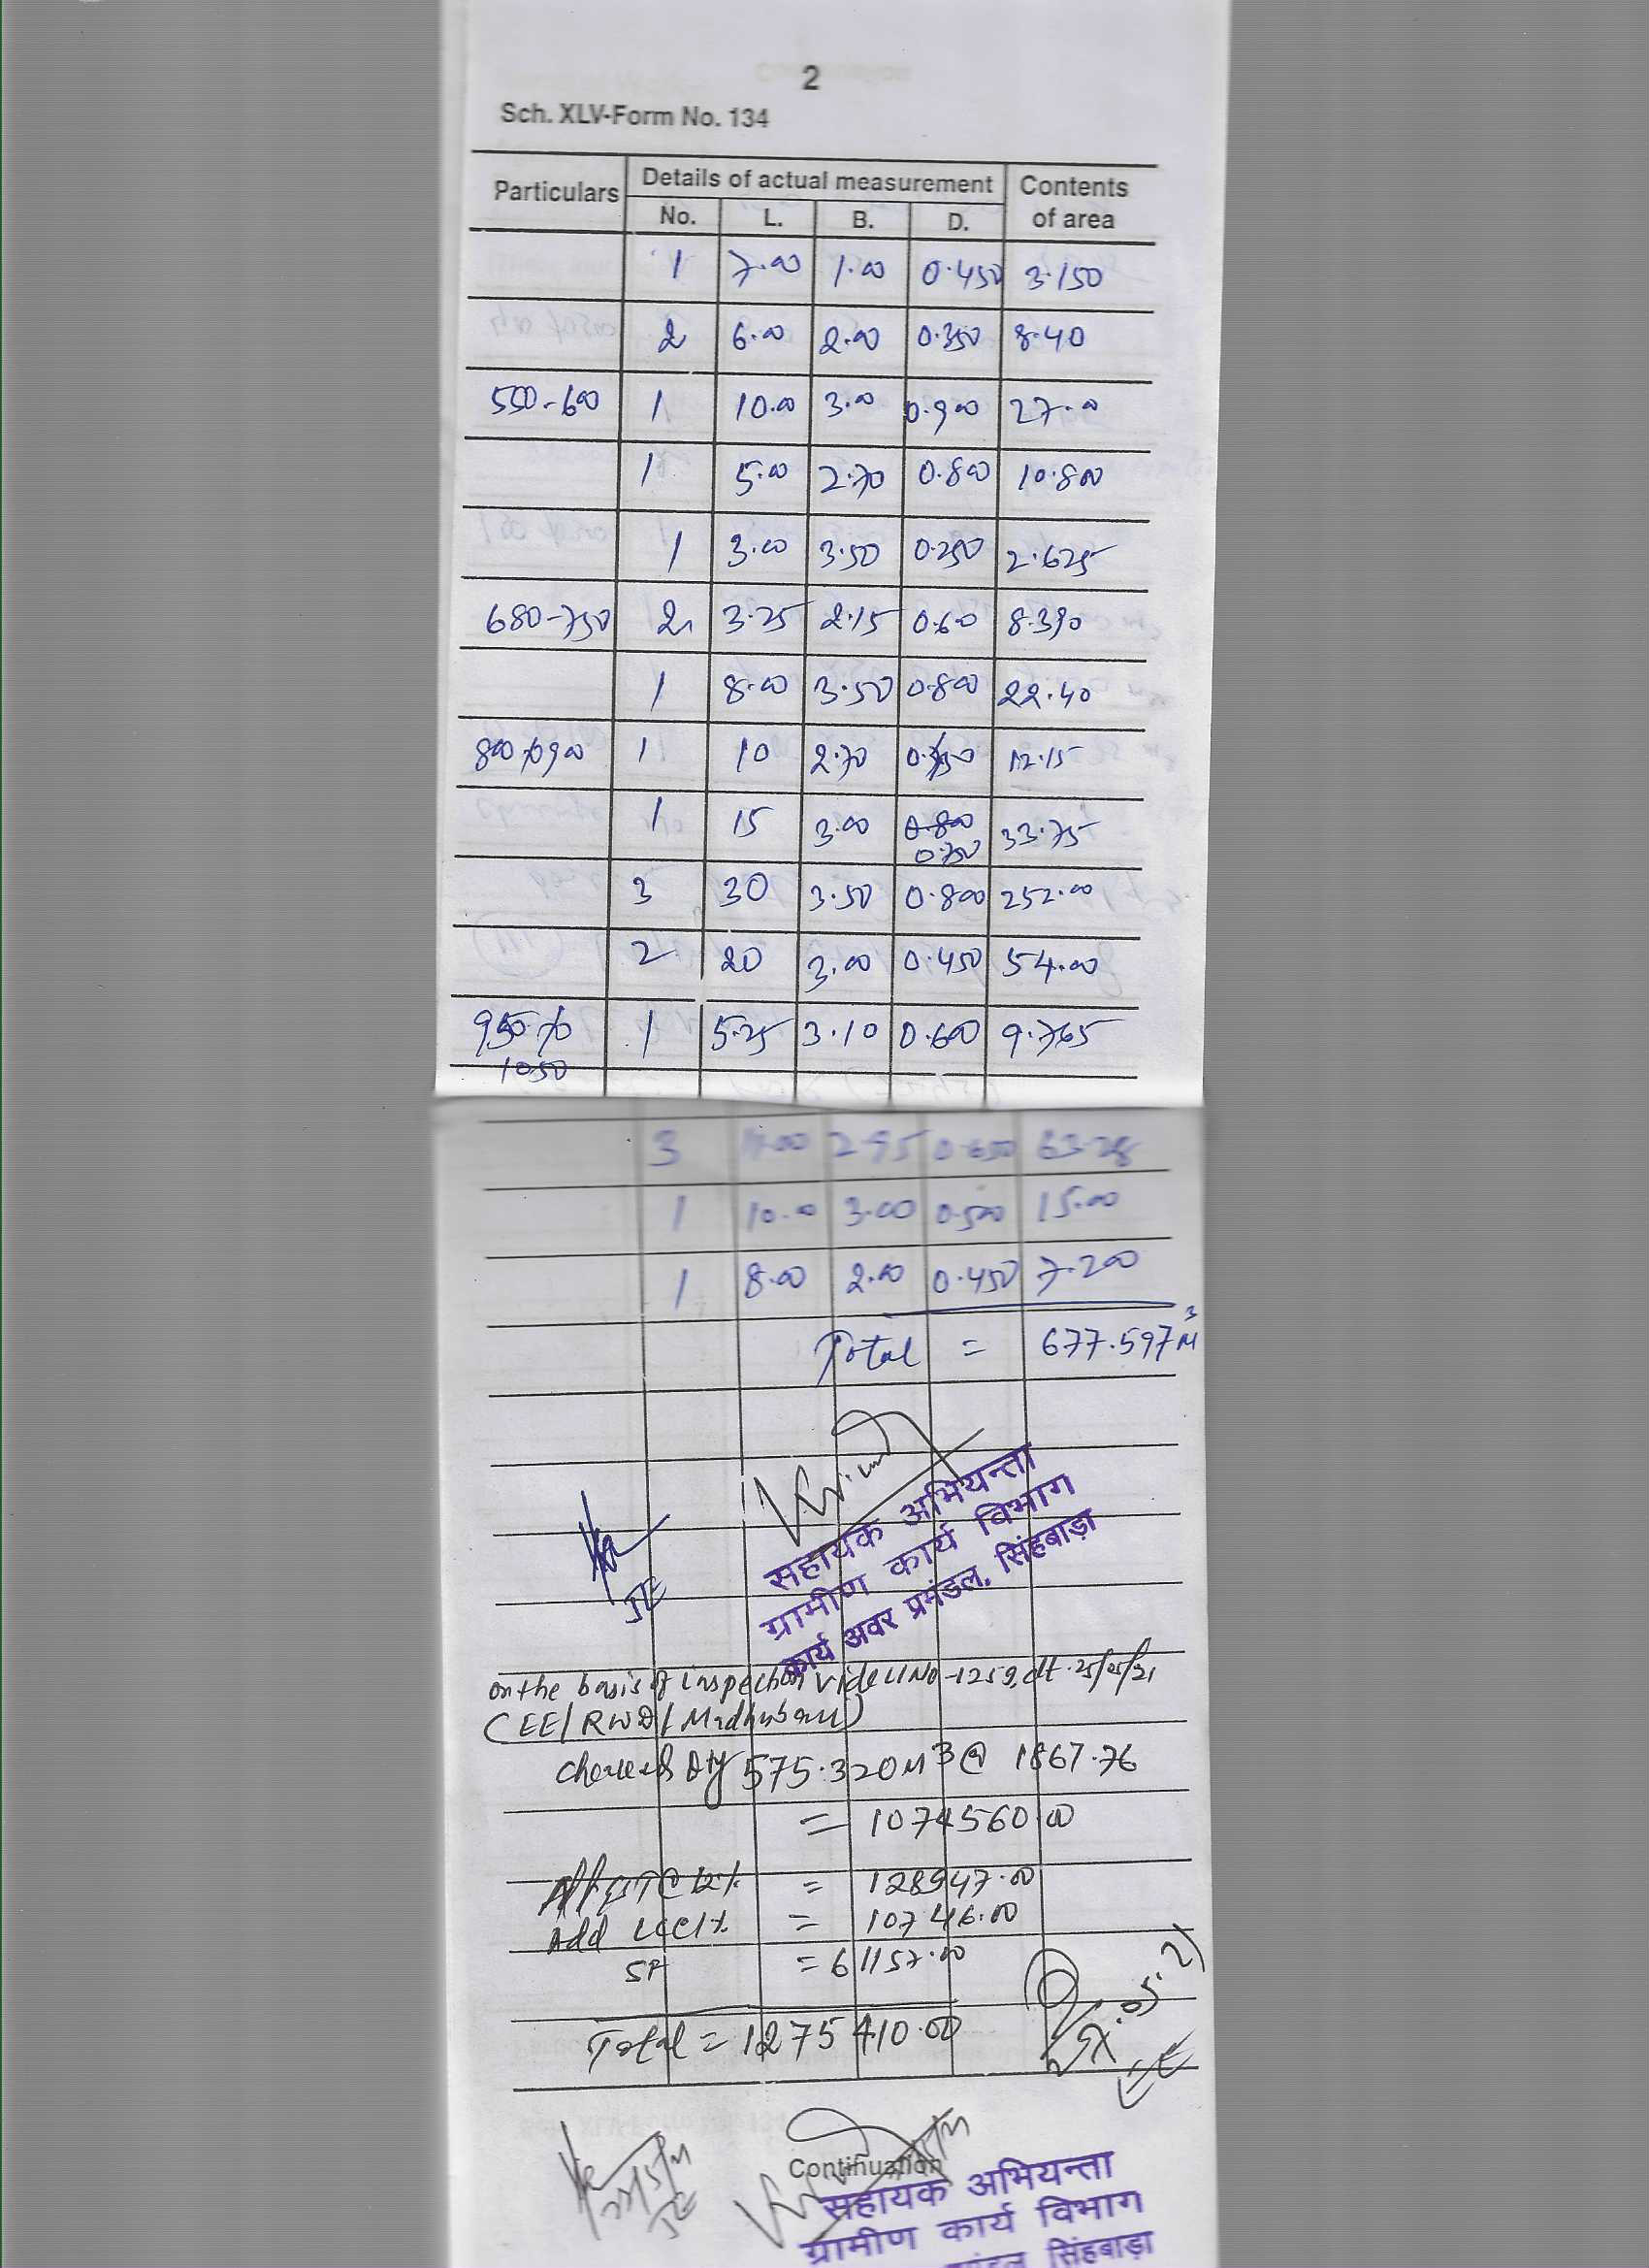 2
Sch. XLV-Form No. 134
Particulars Details of actual measurement Contents of area
No. L. B. D.
1 7.00 1.00 0.450 3.150
2 6.00 2.00 0.350 8.40
550-600 1 10.00 3.00 0.900 27.00
1 5.00 2.70 0.800 10.800
1 3.00 3.50 0.250 2.625
680-750 2 3.25 2.15 0.60 8.390
1 8.00 3.50 0.800 22.40
800 to 900 1 10 2.70 12.15
1 15 3.00 0.800 33.75
0.750
3 30 3.50 0.800 252.00
2 20 3.00 0.450 54.00
950 to 1 5.25 3.10 0.600 9.765
1050
3 11.00 2.95 0.650 63.28
1 10.00 3.00 0.500 15.00
1 8.00 2.00 0.450 7.200
Total = 677.597 M3
JE
सहायक अभियन्ता
ग्रामीण कार्य विभाग
कार्य अवर प्रमंडल, सिंहबाड़ा
on the basis of inspection vide L.No-1259, dt. 25/05/21
(EE/RWD/Madhubani)
575.320 M3 @ 1867.76
= 1074560.00
GST @ 12% = 128947.00
Add LCC 1% = 10746.00
SF = 61157.00
Total = 1275410.00
.05.21
EE
JE
Continuation
सहायक अभियन्ता
ग्रामीण कार्य विभाग
सिंहबाड़ा